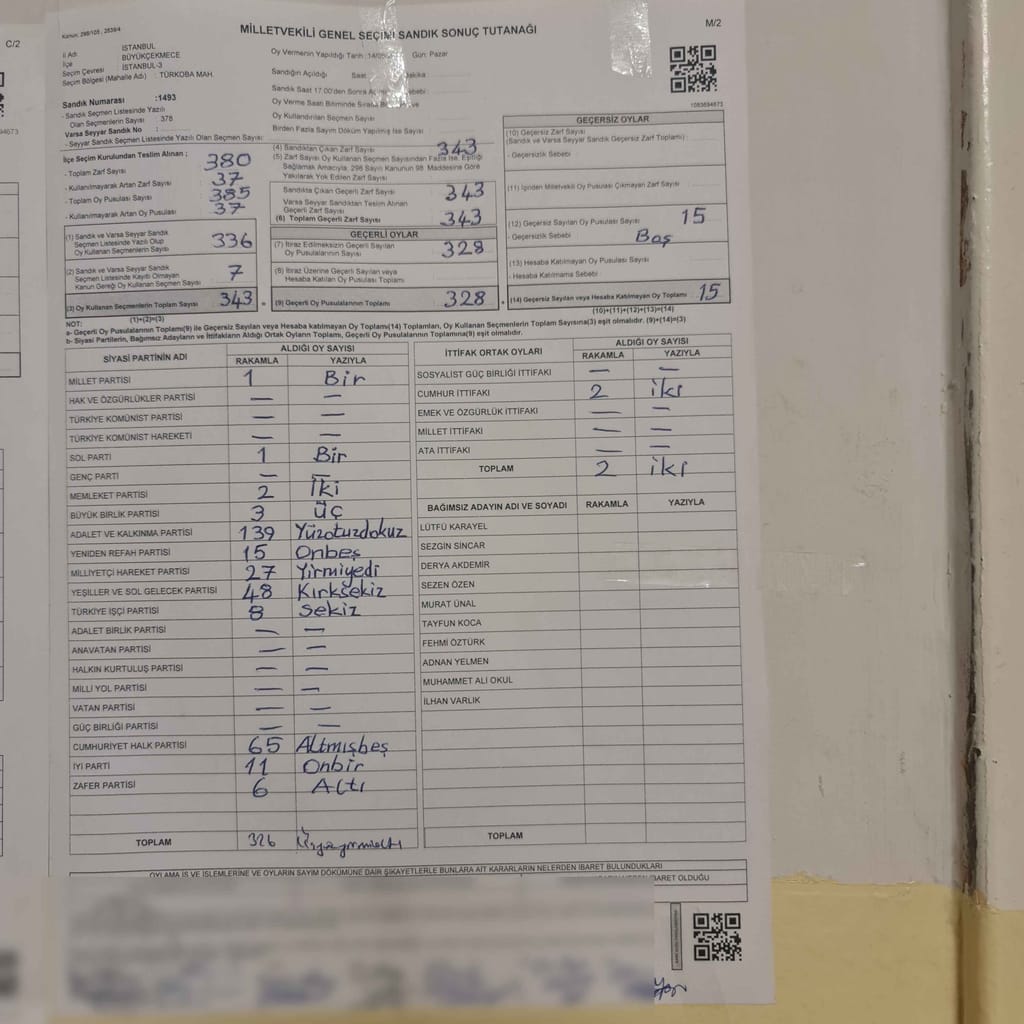 C/2
Kanun: 298/105, 2839/4
MİLLETVEKİLİ GENEL SEÇİMİ SANDIK SONUÇ TUTANAĞI
M/2
İl Adı İSTANBUL
İlçe BÜYÜKÇEKMECE
Seçim Çevresi İSTANBUL-3
Seçim Bölgesi (Mahalle Adı) : TÜRKOBA MAH.
Sandık Numarası :1493
- Sandık Seçmen Listesinde Yazılı
Olan Seçmenlerin Sayısı : 378
Varsa Seyyar Sandık No :
- Seyyar Sandık Seçmen Listesinde Yazılı Olan Seçmen Sayısı:
Oy Vermenin Yapıldığı Tarih : Gün: Pazar
Sandığın Açıldığı Saat
Sandık Saat 17:00'den Sonra
Oy Verme Saati Bitiminde
Oy Kullandırılan Seçmen Sayısı
Birden Fazla Sayım Döküm Yapılmış İse Sayısı
1083694673
İlçe Seçim Kurulundan Teslim Alınan ;
- Toplam Zarf Sayısı 380
- Kullanılmayarak Artan Zarf Sayısı 37
- Toplam Oy Pusulası Sayısı 385
- Kullanılmayarak Artan Oy Pusulası 37
(1) Sandık ve Varsa Seyyar Sandık
Seçmen Listesinde Yazılı Olup
Oy Kullanan Seçmenlerin Sayısı 336
(2) Sandık ve Varsa Seyyar Sandık
Seçmen Listesinde Kayıtlı Olmayan
Kanun Gereği Oy Kullanan Seçmen Sayısı 7
(3) Oy Kullanan Seçmenlerin Toplam Sayısı 343
(1)+(2)=(3)
(4) Sandıktan Çıkan Zarf Sayısı 343
(5) Zarf Sayısı Oy Kullanan Seçmen Sayısından Fazla İse, Eşitliği
Sağlamak Amacıyla, 298 Sayılı Kanunun 98. Maddesine Göre
Yakılarak Yok Edilen Zarf Sayısı
Sandıkta Çıkan Geçerli Zarf Sayısı 343
Varsa Seyyar Sandıktan Teslim Alınan
Geçerli Zarf Sayısı
(6) Toplam Geçerli Zarf Sayısı 343
GEÇERLİ OYLAR
(7) İtiraz Edilmeksizin Geçerli Sayılan
Oy Pusulasının Sayısı 328
(8) İtiraz Üzerine Geçerli Sayılan veya
Hesaba Katılan Oy Pusulası Toplamı
(9) Geçerli Oy Pusulalarının Toplamı 328
GEÇERSİZ OYLAR
(10) Geçersiz Zarf Sayısı
(Sandık ve Varsa Seyyar Sandık Geçersiz Zarf Toplamı) :
- Geçersizlik Sebebi
(11) İçinden Milletvekili Oy Pusulası Çıkmayan Zarf Sayısı
(12) Geçersiz Sayılan Oy Pusulası Sayısı 15
- Geçersizlik Sebebi Boş
(13) Hesaba Katılmayan Oy Pusulası Sayısı
- Hesaba Katılmama Sebebi
(14) Geçersiz Sayılan veya Hesaba Katılmayan Oy Toplamı 15
(10)+(11)+(12)+(13)=(14)
NOT:
a- Geçerli Oy Pusulalarının Toplamı(9) ile Geçersiz Sayılan veya Hesaba katılmayan Oy Toplamı(14) Toplamları, Oy Kullanan Seçmenlerin Toplam Sayısına(3) eşit olmalıdır. (9)+(14)=(3)
b- Siyasi Partilerin, Bağımsız Adayların ve İttifakların Aldığı Oylar ile Ortak Oyların Toplamı, Geçerli Oy Pusulalarının Toplamına(9) eşit olmalıdır.
SİYASİ PARTİNİN ADI ALDIĞI OY SAYISI
RAKAMLA YAZIYLA
MİLLET PARTİSİ 1 Bir
HAK VE ÖZGÜRLÜKLER PARTİSİ — —
TÜRKİYE KOMÜNİST PARTİSİ — —
TÜRKİYE KOMÜNİST HAREKETİ — —
SOL PARTİ 1 Bir
GENÇ PARTİ — —
MEMLEKET PARTİSİ 2 İki
BÜYÜK BİRLİK PARTİSİ 3 üç
ADALET VE KALKINMA PARTİSİ 139 Yüzotuzdokuz
YENİDEN REFAH PARTİSİ 15 Onbeş
MİLLİYETÇİ HAREKET PARTİSİ 27 Yirmiyedi
YEŞİLLER VE SOL GELECEK PARTİSİ 48 Kırksekiz
TÜRKİYE İŞÇİ PARTİSİ 8 Sekiz
ADALET BİRLİK PARTİSİ — —
ANAVATAN PARTİSİ — —
HALKIN KURTULUŞ PARTİSİ — —
MİLLİ YOL PARTİSİ — —
VATAN PARTİSİ — —
GÜÇ BİRLİĞİ PARTİSİ — —
CUMHURİYET HALK PARTİSİ 65 Altmışbeş
İYİ PARTİ 11 Onbir
ZAFER PARTİSİ 6 Altı
TOPLAM 326
İTTİFAK ORTAK OYLARI ALDIĞI OY SAYISI
RAKAMLA YAZIYLA
SOSYALİST GÜÇ BİRLİĞİ İTTİFAKI — —
CUMHUR İTTİFAKI 2 iki
EMEK VE ÖZGÜRLÜK İTTİFAKI — —
MİLLET İTTİFAKI — —
ATA İTTİFAKI — —
TOPLAM 2 iki
BAĞIMSIZ ADAYIN ADI VE SOYADI RAKAMLA YAZIYLA
LÜTFÜ KARAYEL
SEZGİN SİNCAR
DERYA AKDEMİR
SEZEN ÖZEN
MURAT ÜNAL
TAYFUN KOCA
FEHMİ ÖZTÜRK
ADNAN YELMEN
MUHAMMET ALİ OKUL
İLHAN VARLIK
TOPLAM
OYLAMA İŞ VE İŞLEMLERİNE VE OYLARIN SAYIM DÖKÜMÜNE DAİR ŞİKAYETLERLE BUNLARA AİT KARARLARIN NELERDEN İBARET BULUNDUKLARI